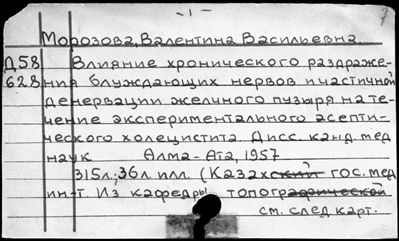 -1-
7
Морозова, Валентина Васильевна.
Д58 Влияние хронического раздраже-
628 ния блуждающих нервов и частичной
денервации желчного пузыря на те-
чение экспериментального асепти-
ческого холецистита. Дисс. канд. мед
наук Алма-Ата, 1957
315л.; 36л. илл. (Казахский гос. мед
ин-т. Из кафедры топографической
см. след карт.